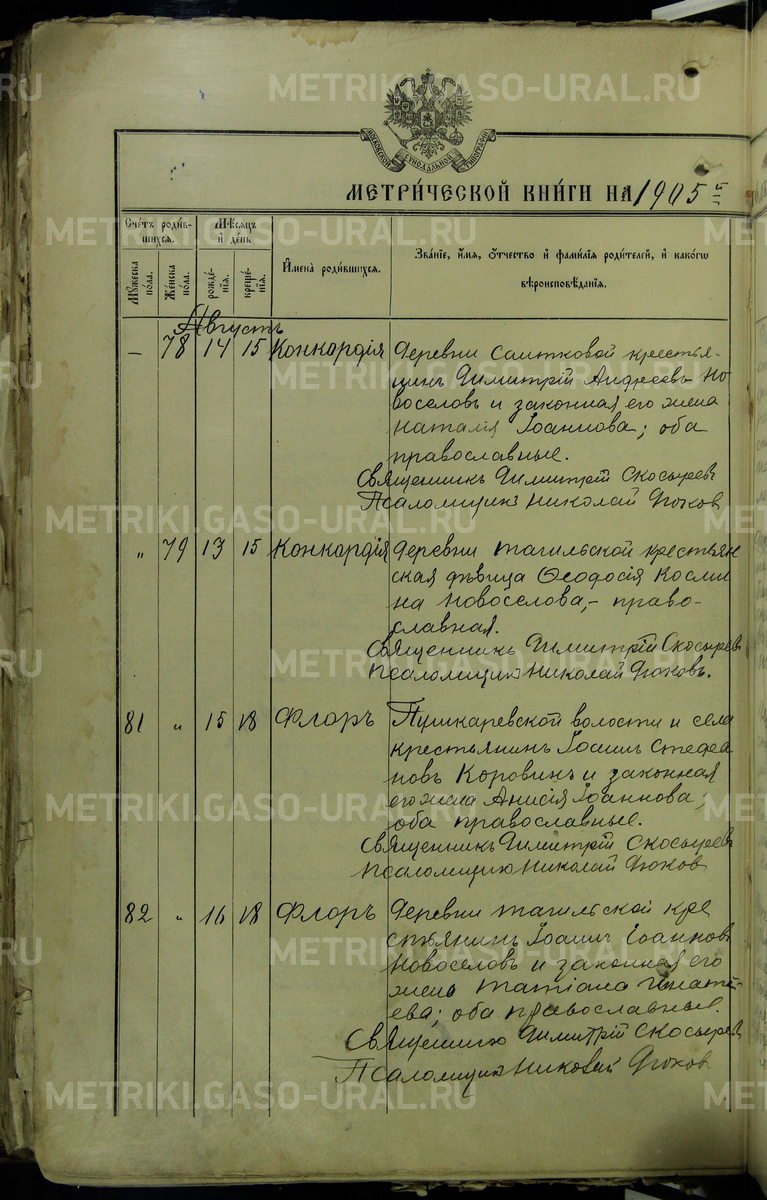 МОСКОВСКОЙ СѴНОДАЛЬНОЙ ТИПОГРАФІИ
МЕТРИ́ЧЕСКОЙ КНИ́ГИ НА 1905 г
Сче́тъ роди́в-
шихсѧ.
Мꙋ́жеска по́ла.
Же́нска по́ла.
Мѣ́сѧцъ
и҆ де́нь
рожде́нїѧ.
креще́нїѧ.
И҆мена̀ роди́вшихсѧ.
Зва́нїе, и҆́мѧ, ѻ҆́тчество и҆ фами́лїѧ роди́телей, и҆ како́гѡ
вѣроисповѣ́данїѧ.
Августъ
— 78 14 15 Конкордія Деревни Саитковой крестья-
нинъ Димитрій Андреевъ Но
воселовъ и законная его жена
Наталія Іоаннова; оба
православные.
Священникъ Димитрій Скосыревъ
Псаломщикъ Николай
„ 79 13 15 Конкордія Деревни Тагильской крестьян
ская дѣвица Ѳеодосія Косми
на Новоселова,- право-
славная.
Священникъ Димитрій Скосыревъ
Псаломщикъ Николай
81 „ 15 18 Флоръ Пушкаревской волости и села
крестьянинъ Іоаннъ Стефа
новъ Коровинъ и законная
его жена Анисія Іоаннова;
оба православные.
Священникъ Димитрій Скосыревъ
Псаломщикъ Николай
82 „ 16 18 Флоръ Деревни Тагильской кре
стьянинъ Іоаннъ Іоанновъ
Новоселовъ и законная его
жена Татіана Игнаті-
ева; оба православные.
Священникъ Димитрій Скосыревъ
Псаломщикъ Николай
METRIKI.GASO-URAL.RU